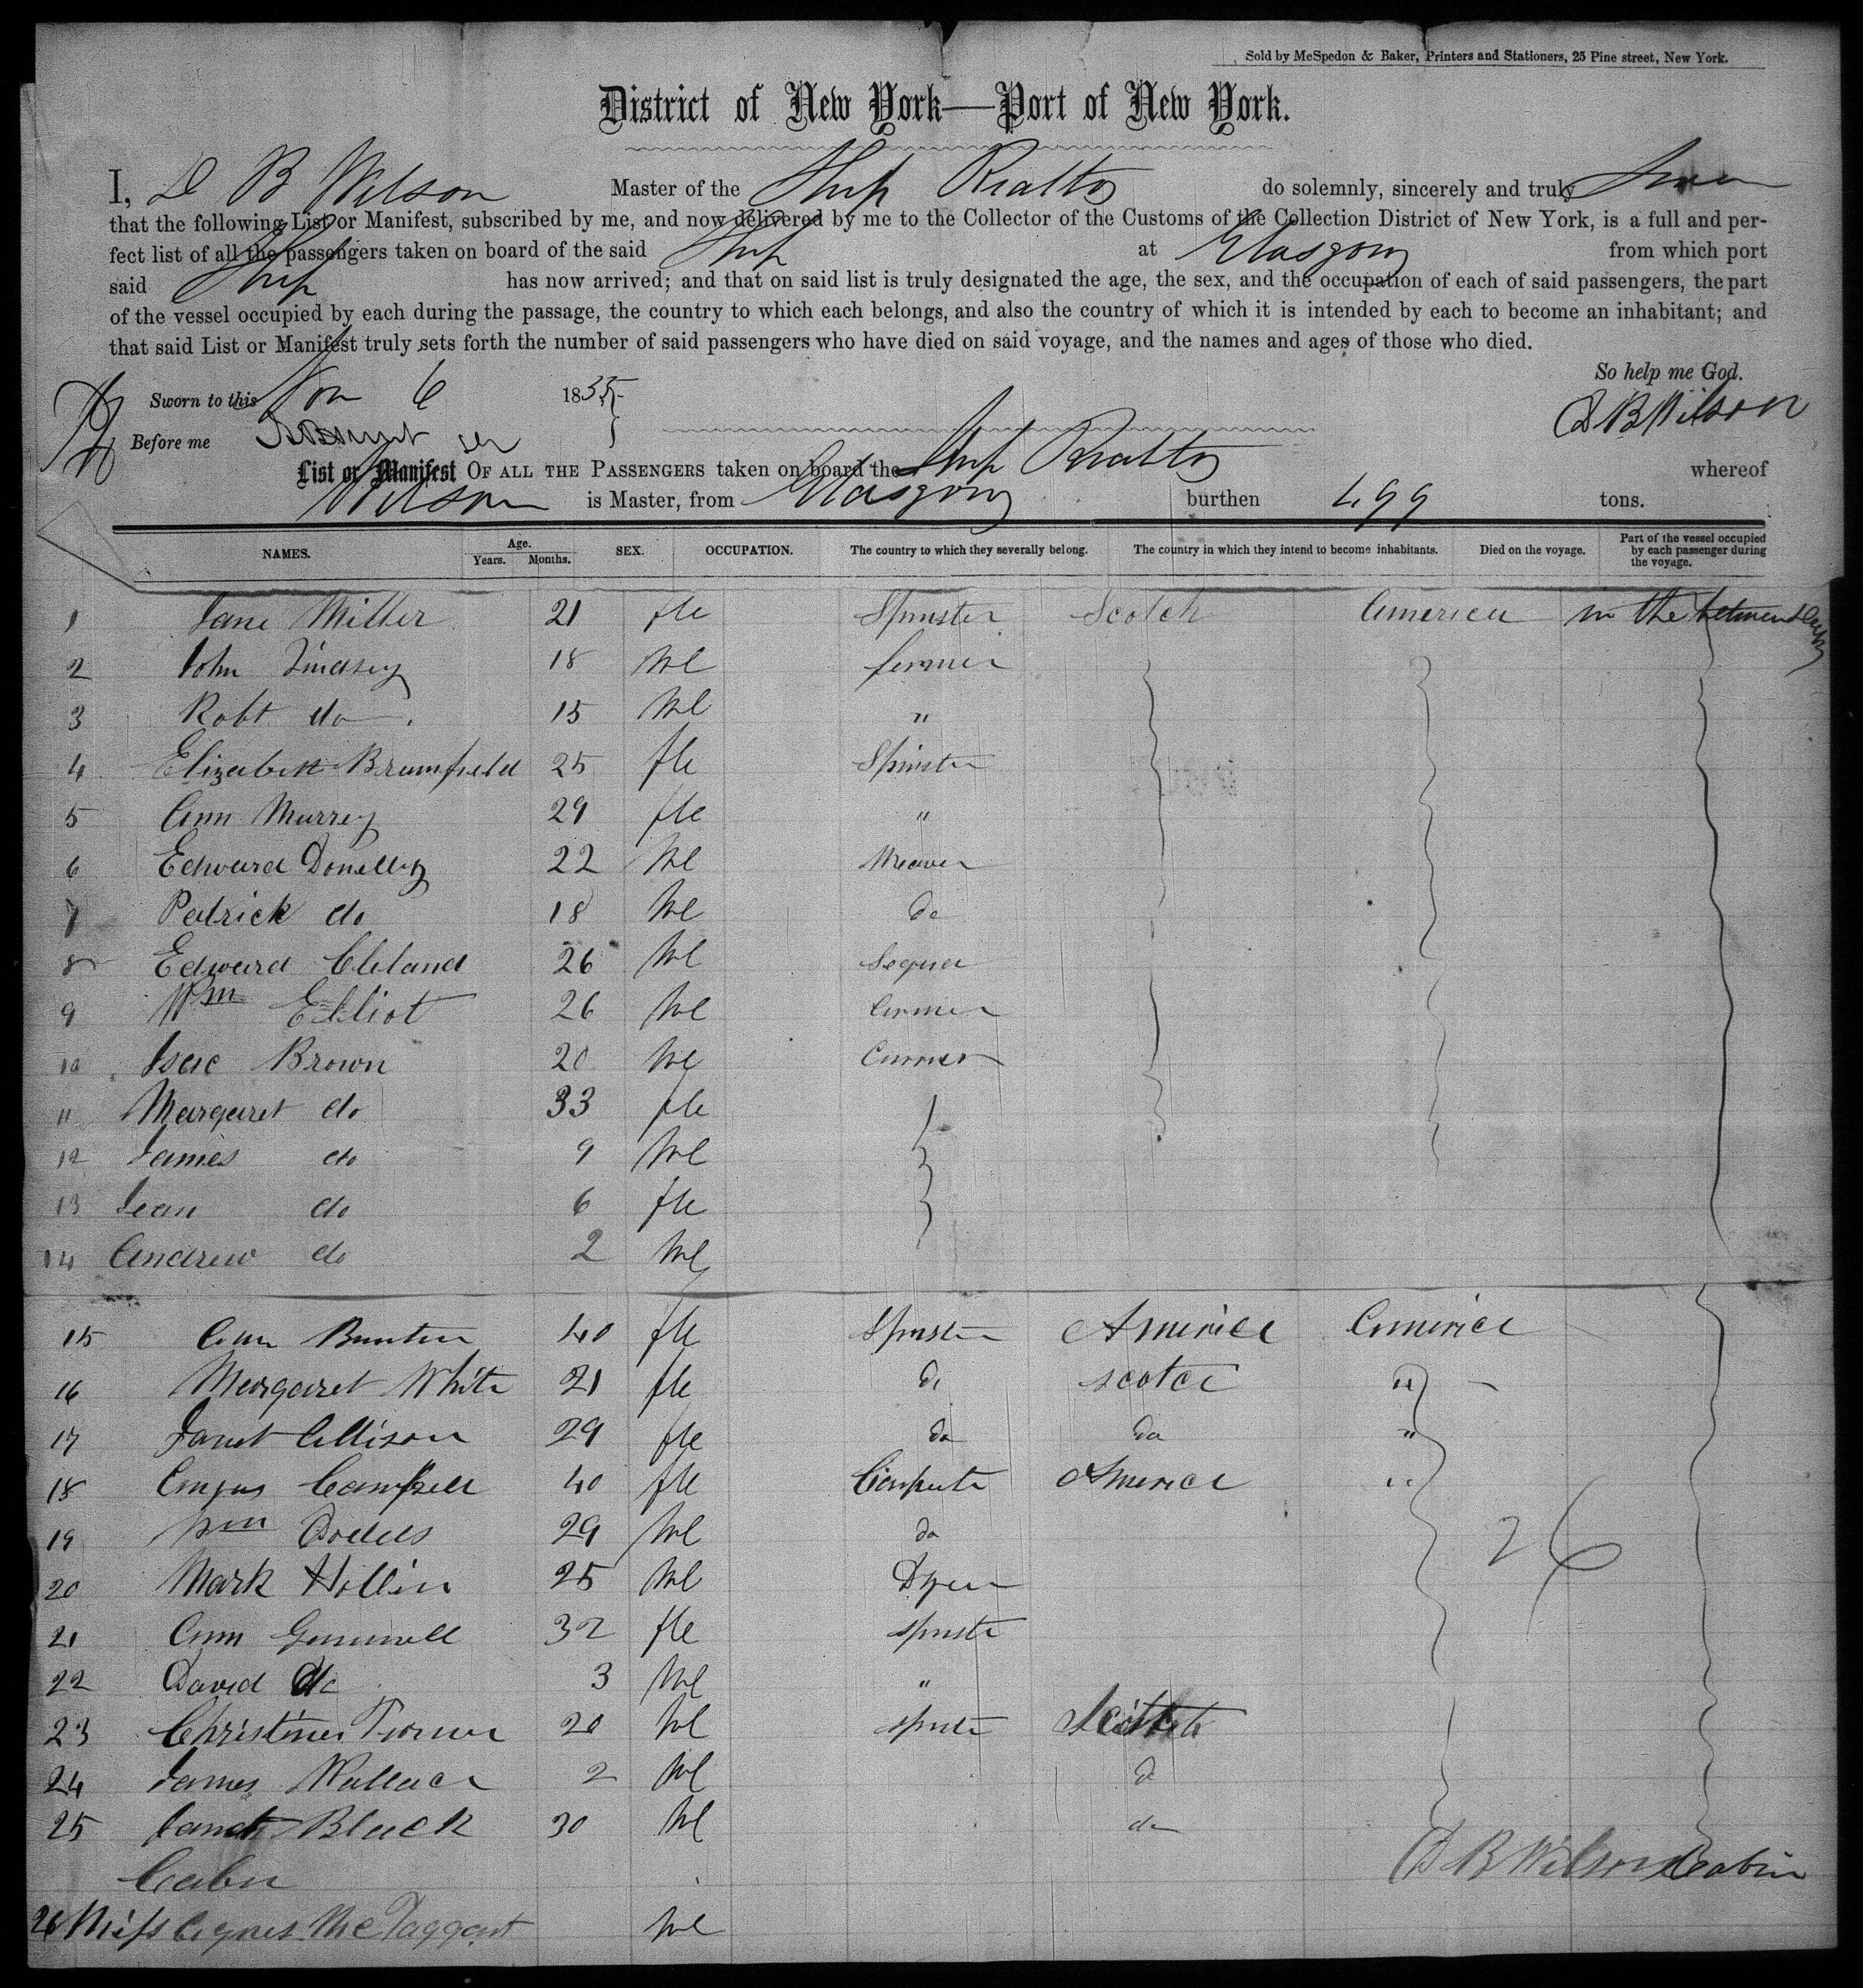 Sold by McSpedon & Baker, Printers and Stationers, 25 Pine street, New York.
District of New York—Port of New York.
I, D B Wilson Master of the Ship Rialto do solemnly, sincerely and truly Swear
that the following List or Manifest, subscribed by me, and now delivered by me to the Collector of the Customs of the Collection District of New York, is a full and per-
fect list of all the passengers taken on board of the said Ship at Glasgow from which port
said Ship has now arrived; and that on said list is truly designated the age, the sex, and the occupation of each of said passengers, the part
of the vessel occupied by each during the passage, the country to which each belongs, and also the country of which it is intended by each to become an inhabitant; and
that said List or Manifest truly sets forth the number of said passengers who have died on said voyage, and the names and ages of those who died.
So help me God.
Sworn to this Nov 6 1855
D B Wilson
Before me
List or Manifest OF ALL THE PASSENGERS taken on board the Ship Rialto whereof
Wilson is Master, from Glasgow burthen 499 tons.
NAMES. Age. Years. Months. SEX. OCCUPATION. The country to which they severally belong. The country in which they intend to become inhabitants. Died on the voyage. Part of the vessel occupied by each passenger during the voyage.
1 Jane Miller 21 fle Spinster Scotch America in the between decks
2 John Lindsey 18 Ml farmer
3 Robt do 15 Ml "
4 Elizabeth Bramfield 25 fle Spinster
5 Ann Murrey 29 fle "
6 Edward Donelly 22 Ml Weaver
7 Patrick do 18 Ml do
8 Edward Cleland 26 Ml
9 Wm Elliot 26 Ml
10 Isac Brown 20 Ml Currier
11 Margaret do 33 fle
12 James do 9 Ml
13 Jean do 6 fle
14 Andrew do 2 Ml
15 Ann 40 fle Spinster America America
16 Margaret White 21 fle do "
17 Janet Allison 29 fle do do "
18 Angus Campbell 40 fle Carpenter America "
19 Wm Dodds 29 Ml do
26
20 Mark Hollin 25 Ml Dyer
21 Ann Gemmell 32 fle spinster
22 David do 3 Ml "
23 Christina Turner 20 Ml
24 James Wallace 2 Ml d
25 Janet Black 30 Ml do
D B Wilson Cabin
Cabin
26 Miss Agnes McTaggart Ml